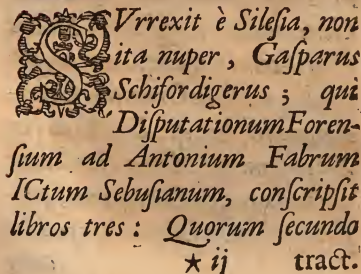 SVrrexit è Sileſia, non
ita nuper, Gaſparus
Schifordigerus; qui
Diſputationum Foren-
ſium ad Antonium Fabrum
ICtum Sebuſianum, conſcripſit
libros tres: Quorum ſecundo
★ ij tract.